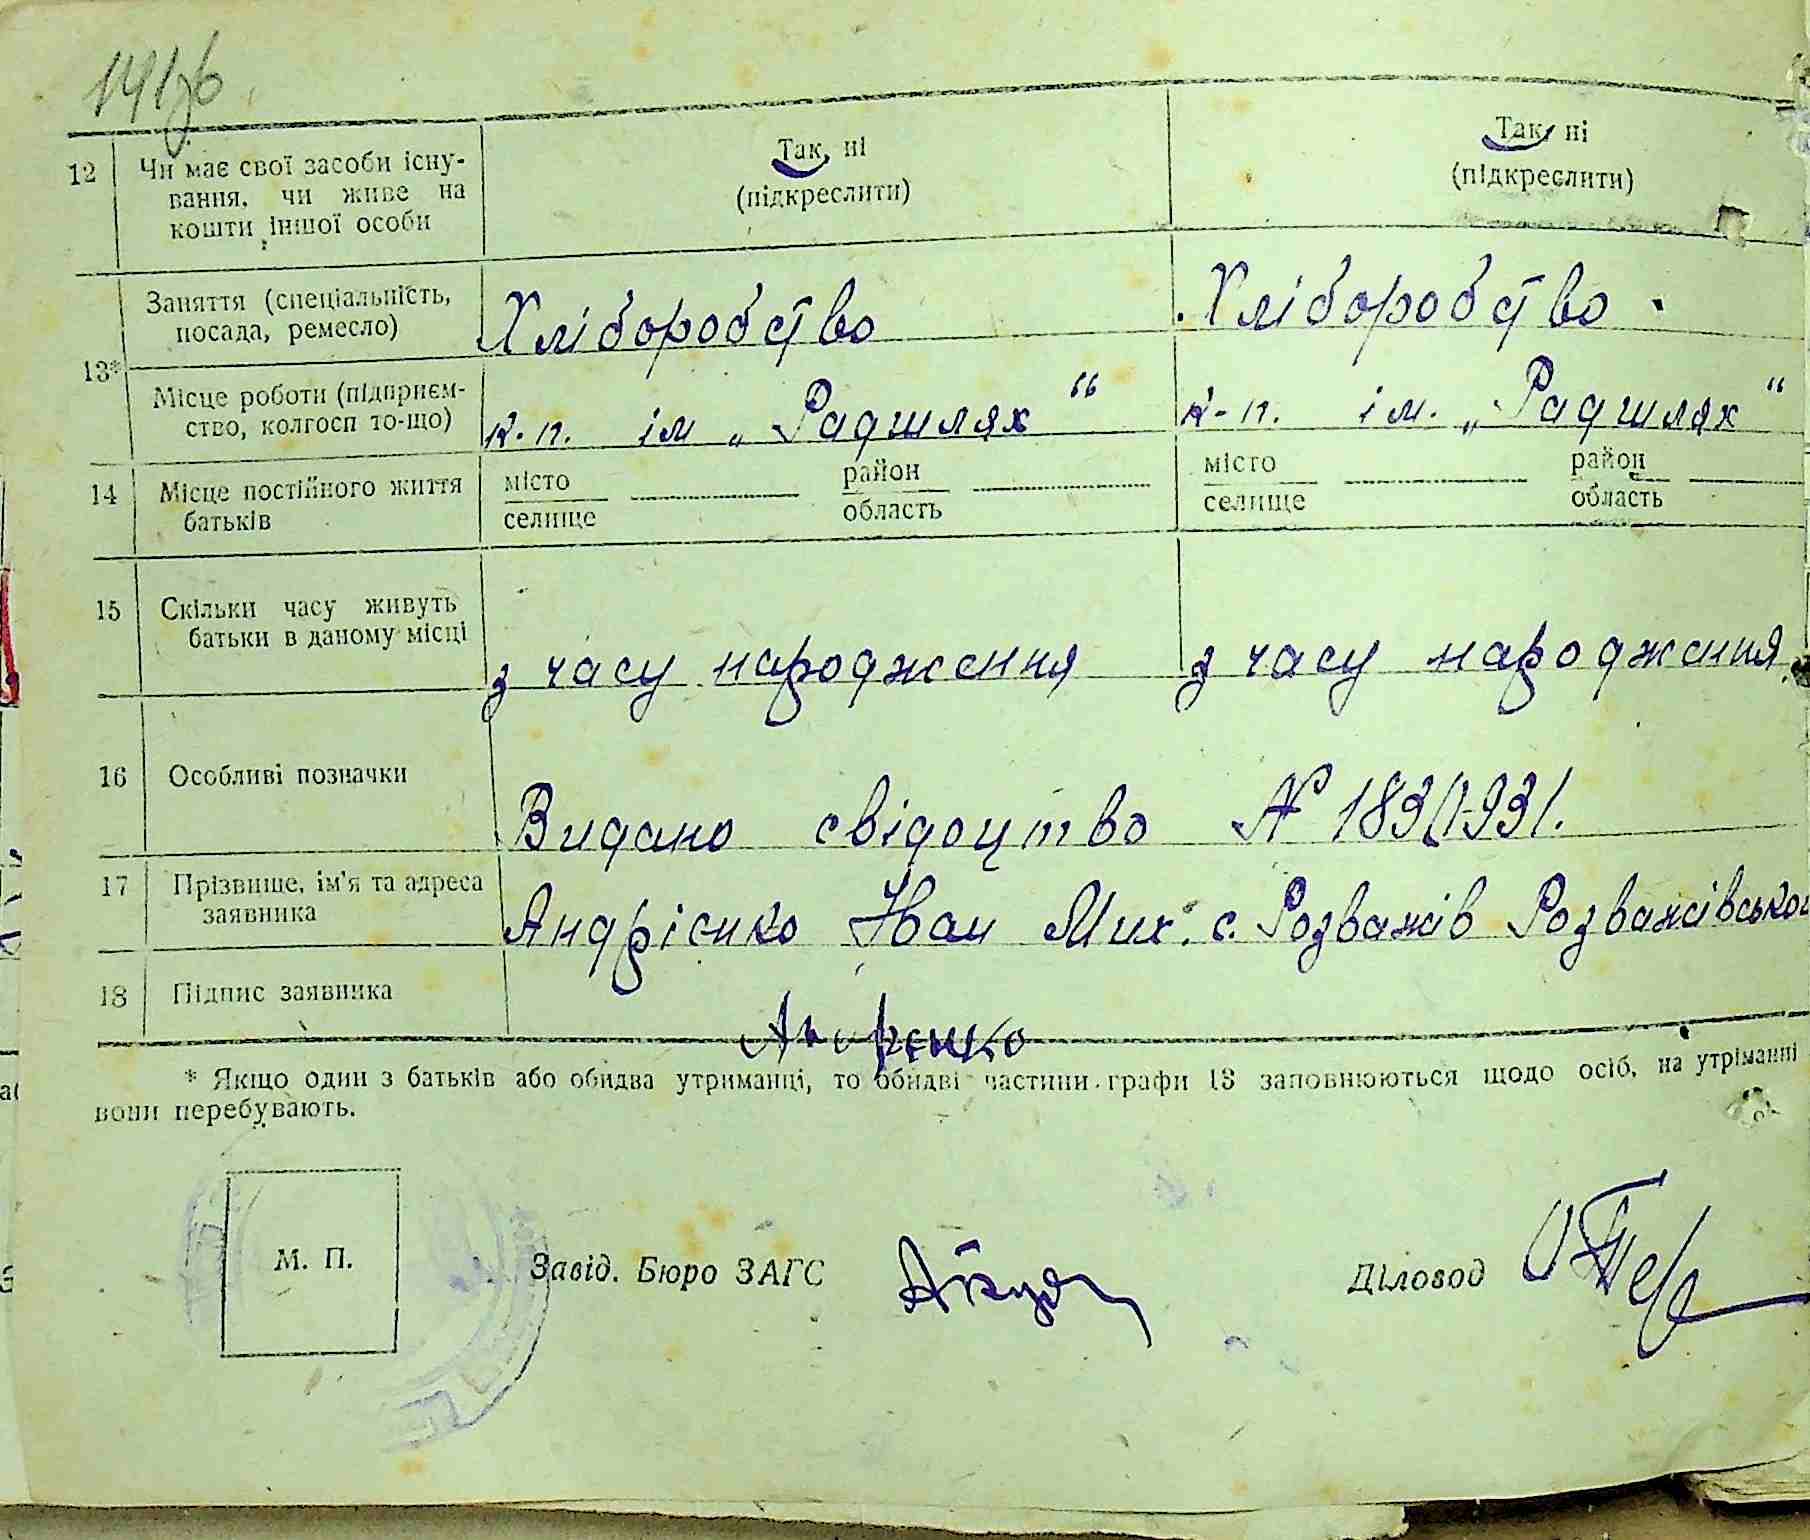 12 Чи має свої засоби існу-
вання, чи живе на
кошти іншої особи
Так, ні
(підкреслити)
Так, ні
(підкреслити)
13*
Заняття (спеціальність,
посада, ремесло)
Хліборобство
Хліборобство
Місце роботи (підприєм-
ство, колгосп то-що)
к-п. ім „Радшлях“
к-п. ім. „Радшлях“
14 Місце постійного життя
батьків
місто
селище
район
область
місто
селище
район
область
15 Скільки часу живуть
батьки в даному місці
з часу народження
з часу народження
16 Особливі позначки
Видано свідоцтво №
17 Прізвище, ім'я та адреса
заявника
Андрієнко Іван Мих. с. Розважів Розважівсько
18 Підпис заявника
* Якщо один з батьків або обидва утриманці, то обидві частини графи 13 заповнюються щодо осіб, на утриманні
вони перебувають.
М. П.
Завід. Бюро ЗАГС
Діловод